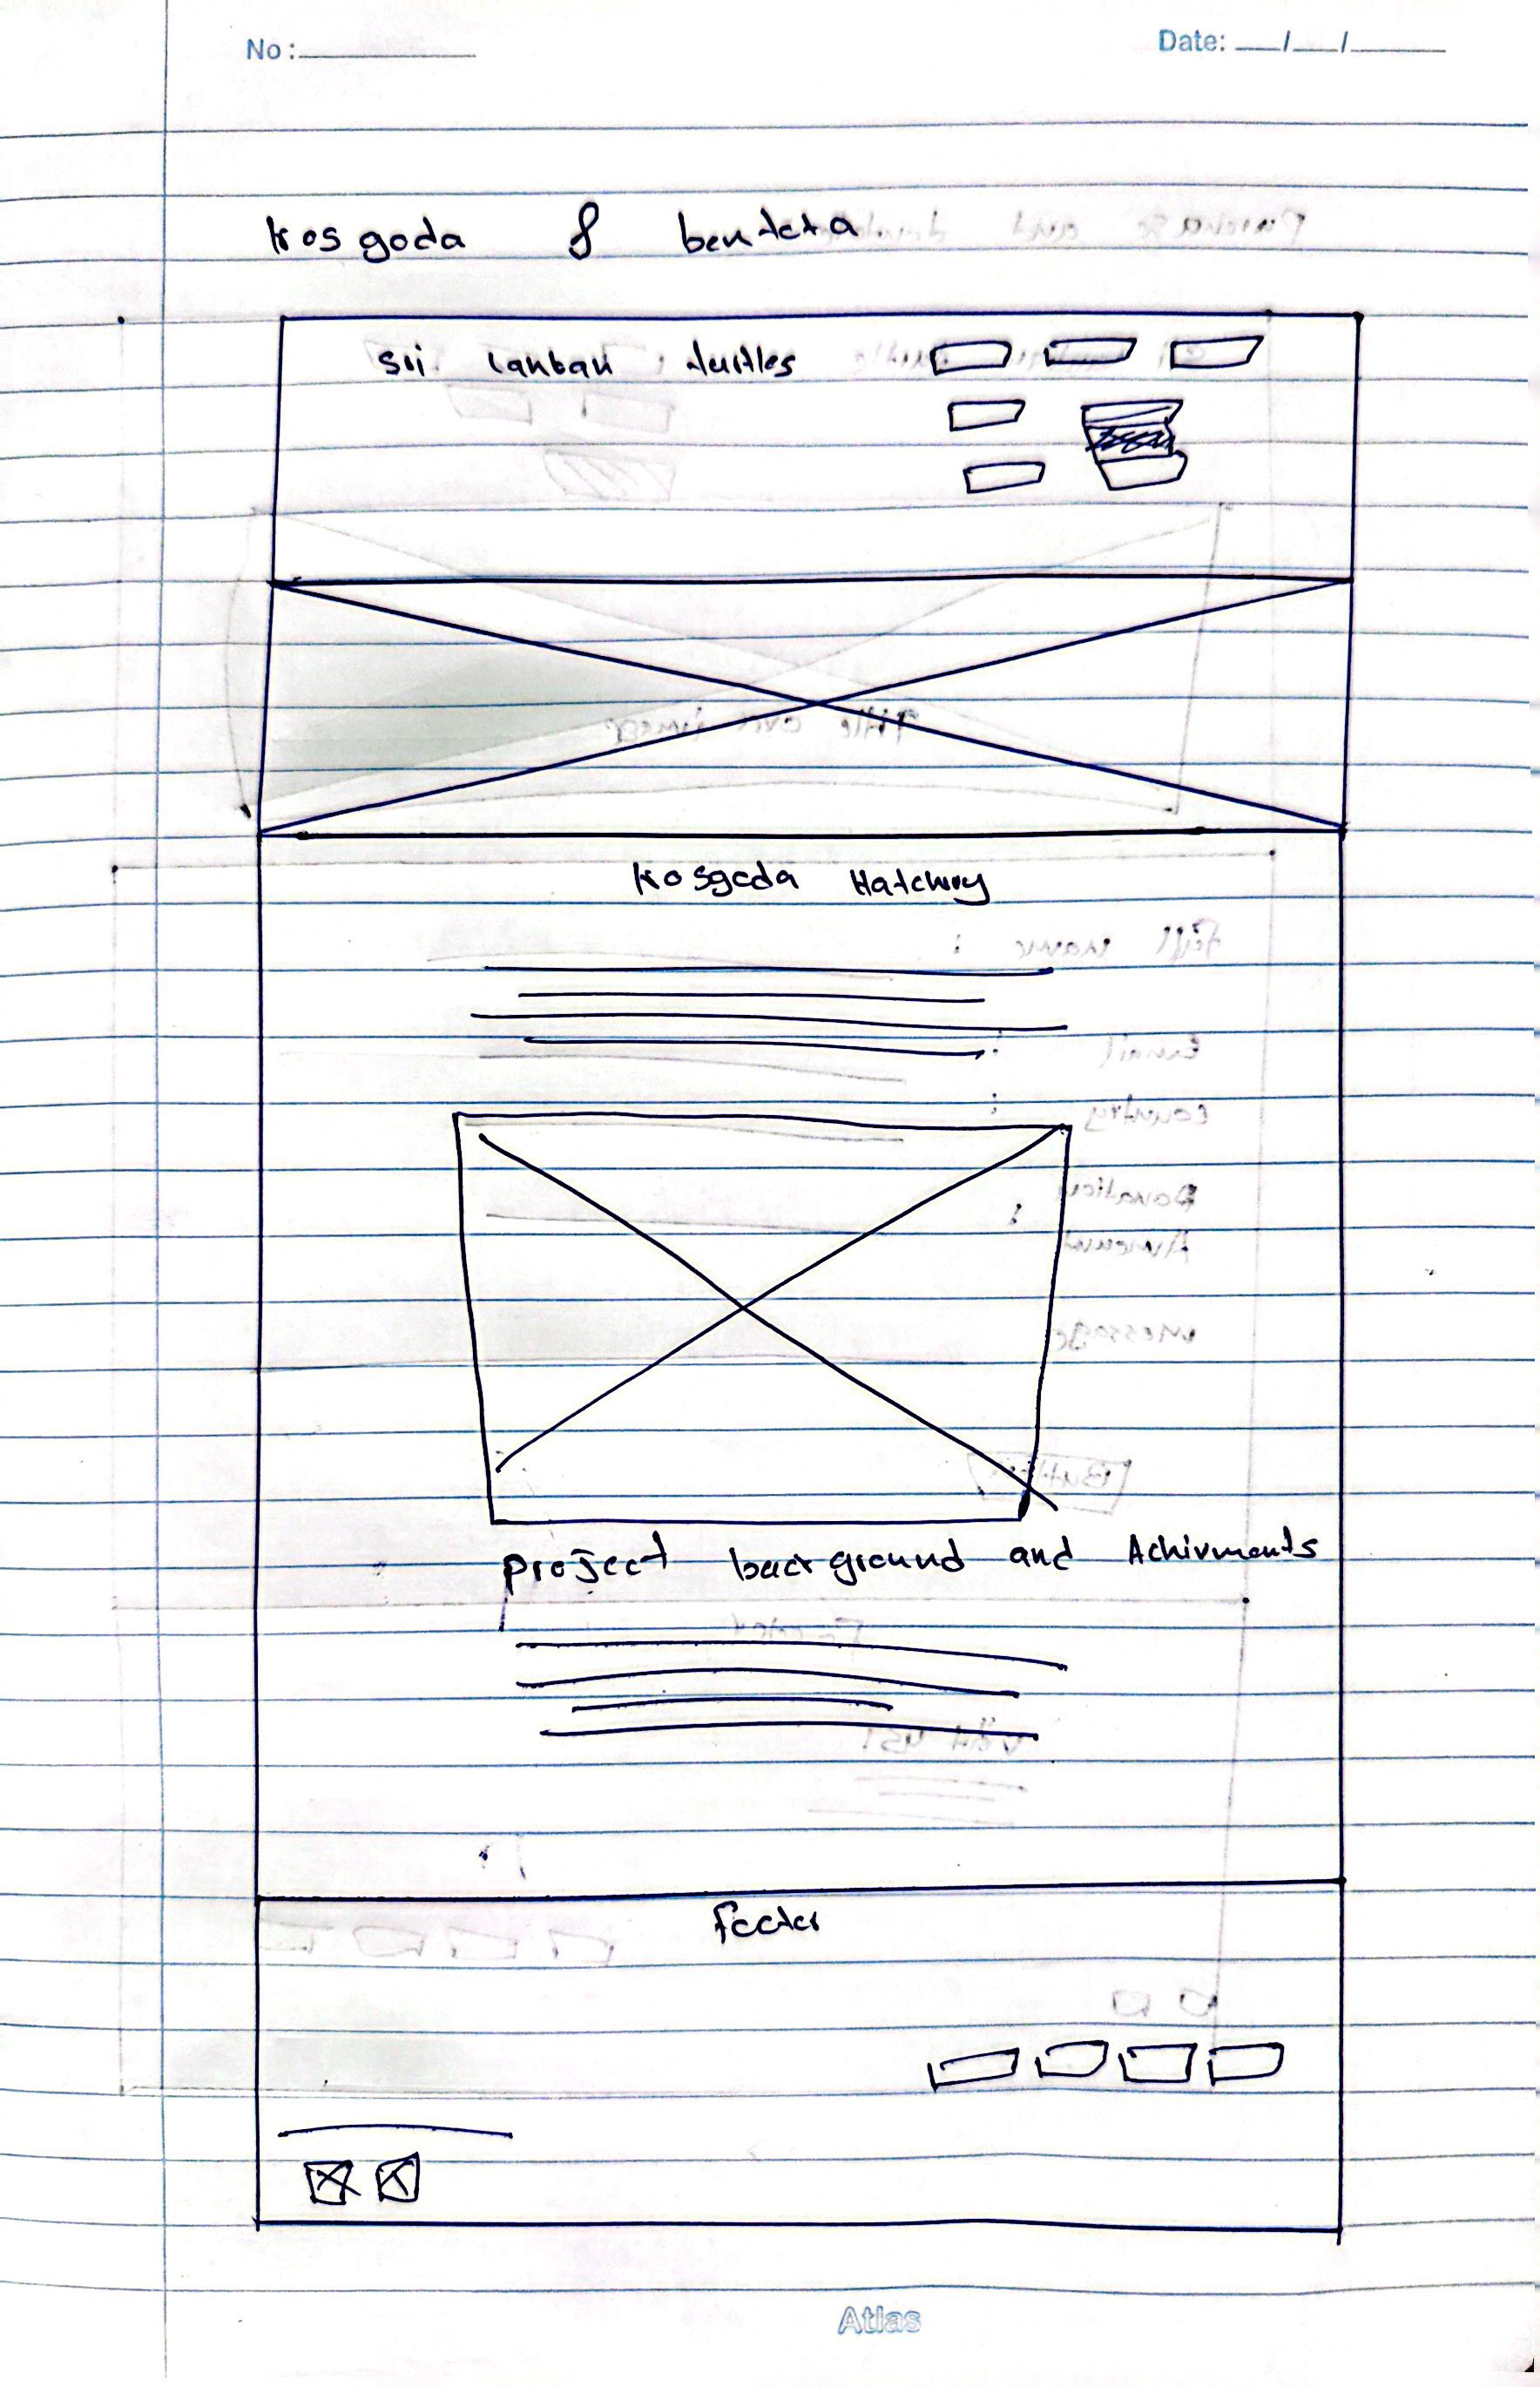 No :
Date: __/__/____
kosgoda & bentota
sri lankan turtles
Kosgoda Hatchery
project background and Achivments
footer
Atlas